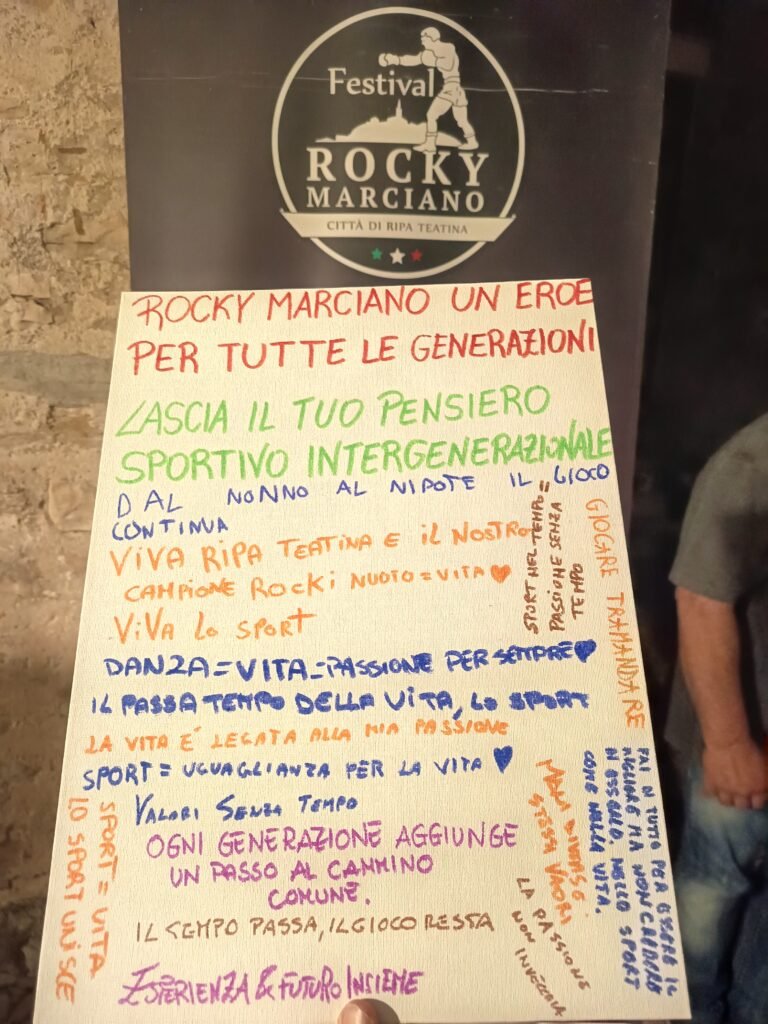 Festival
ROCKY
MARCIANO
CITTÀ DI RIPA TEATINA
ROCKY MARCIANO UN EROE
PER TUTTE LE GENERAZIONI
LASCIA IL TUO PENSIERO
SPORTIVO INTERGENERAZIONALE
DAL NONNO AL NIPOTE IL GIOCO
CONTINUA
VIVA RIPA TEATINA E IL NOSTRO
CAMPIONE ROCKI NUOTO = VITA
VIVA LO SPORT
SPORT NEL TEMPO =
PASSIONE SENZA
TEMPO
GIOCARE TRAMANDARE
DANZA = VITA = PASSIONE PER SEMPRE
IL PASSA TEMPO DELLA VITA, LO SPORT
LA VITA E' LEGATA ALLA MIA PASSIONE
SPORT = UGUAGLIANZA PER LA VITA
VALORI SENZA TEMPO
OGNI GENERAZIONE AGGIUNGE
UN PASSO AL CAMMINO
COMUNE.
IL TEMPO PASSA, IL GIOCO RESTA
ESPERIENZA & FUTURO INSIEME
SPORT = VITA
LO SPORT UNISCE
DIVERSE
STESSI VALORI
LA PASSIONE
NON INVECCHIA
FAI DI TUTTO PER ESSERE IL
MIGLIORE MA NON CREDERE
DI ESSERLO, NELLO SPORT
COME NELLA VITA.